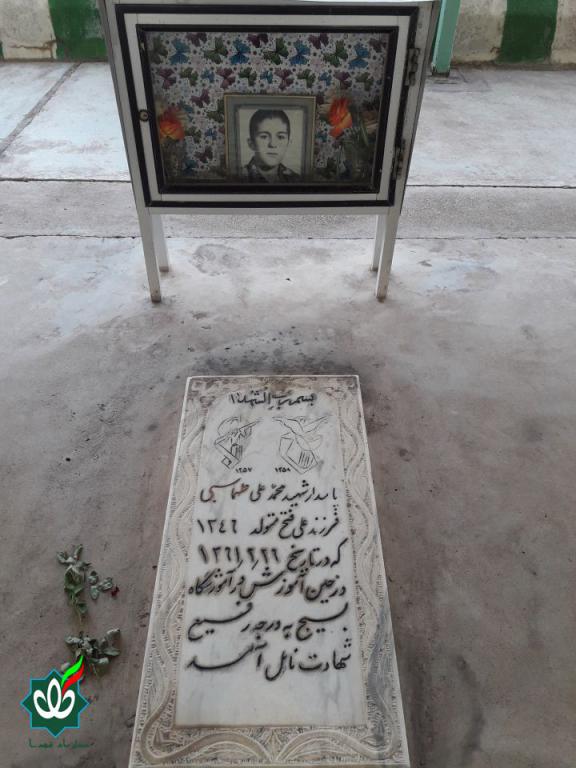 بسم رب الشهدا
۱۳۵۷ ۱۳۵۸
پاسدار شهید محمد علی طهماسبی
فرزند علی فتح متولد ۱۳۴۶
که در تاریخ
در حین آموزش در آموزشگاه
بسیج به درجه رفیع
شهادت نائل آمد